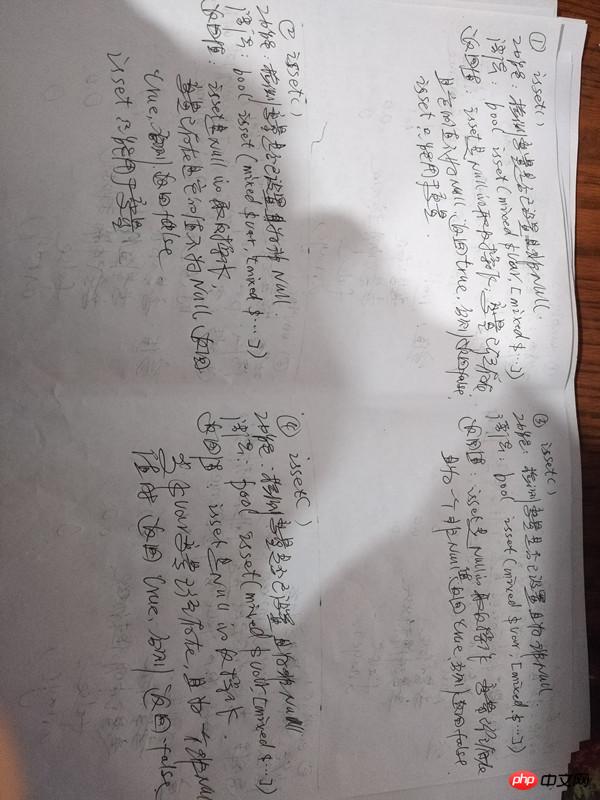 ① isset()
功能: 检测变量是否已设置且非Null.
语法: bool isset(mixed $var[mixed $...])
返回值: isset是Null的取反操作, 变量已经存在
且它的值不为Null, 返回true, 否则返回false.
isset只能用于变量.
② isset()
功能: 检测变量是否已设置且为非Null.
语法: bool isset(mixed $var[mixed $...])
返回值: isset是Null的取反操作,
变量已存在且它的值不为Null, 返回
true, 否则返回false
isset只能用于变量
③ isset()
功能: 检测变量是否已设置且为非Null.
语法: bool isset(mixed $var,[mixed $...])
返回值: isset是Null的取反操作 变量已经存在
且为一个非Null值返回true,否则返回false.
④ isset()
功能: 检测变量是否已设置且为非Null
语法: bool isset(mixed $var,[mixed $...])
返回值: isset是Null的取反操作.
$var变量已经存在, 且为一个非Null
值时返回true, 否则返回false
php中文网